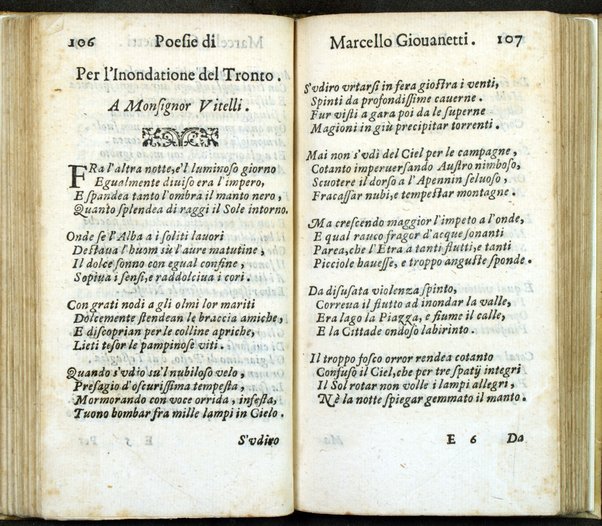 106 Poesie di
Per l'Inondatione del Tronto.
A Monsignor Vitelli.
FRa l'altra notte, e'l luminoso giorno
Egualmente diuiso era l'impero,
E spandea tanto l'ombra il manto nero,
Quanto splendea di raggi il Sole intorno.
Onde se l'Alba a i soliti lauori
Destaua l'huom sù l'aure matutine,
Il dolce sonno con egual confine,
Sopiua i sensi, e raddolciua i cori.
Con grati nodi a gli olmi lor mariti
Dolcemente stendean le braccia amiche,
E discoprian per le colline apriche,
Lieti tesor le pampinose viti.
Quando s'vdìo su'l nubiloso velo,
Presagio d'oscurissima tempesta,
Mormorando con voce orrida, infesta,
Tuono bombar fra mille lampi in Cielo.
E 5 S'vdiro
Marcello Giouanetti. 107
S'vdiro vrtarsi in fera giostra i venti,
Spinti da profondissime cauerne.
Fur visti a gara poi da le superne
Magioni in giù precipitar torrenti.
Mai non s'vdì del Ciel per le campagne,
Cotanto imperuersando Austro nimboso,
Scuotere il dorso a l'Apennin seluoso,
Fracassar nubi, e tempestar montagne.
Ma crescendo maggior l'impeto a l'onde,
E qual rauco fragor d'acque sonanti
Parea, che l'Etra a tanti flutti, e tanti
Picciole hauesse, e troppo anguste sponde.
Da disusata violenza spinto,
Correua il flutto ad inondar la valle,
Era lago la Piazza, e fiume il calle,
E la Cittade ondoso labirinto.
Il troppo fosco orror rendea cotanto
Confuso il Ciel, che per tre spatij integri
Il Sol rotar non volle i lampi allegri,
Nè la notte spiegar gemmato il manto.
E 6 Da